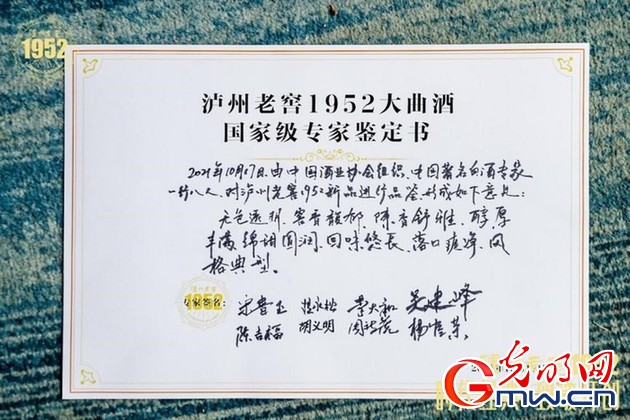 1952
泸州老窖1952大曲酒
国家级专家鉴定书
2021年10月17日由中国酒业协会组织、中国著名白酒专家
一行八人、对泸州老窖1952新品进行品鉴、形成如下意见:
无色透明、窖香馥郁、陈香舒雅、醇厚
丰满、绵甜圆润、回味悠长、落口爽净、风
格典型。
1952
专家签名: 李大和 吴建峰
陈吉福 胡义明 杨官荣
光明网
Gmw.cn